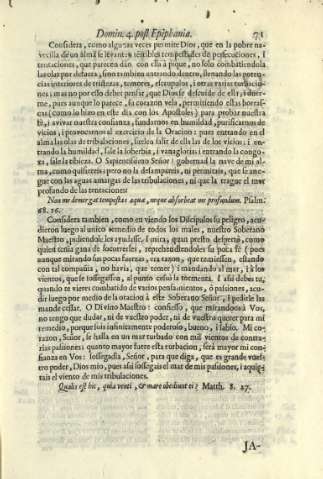 Domin. 4. post Epiphania. 71
Considera, como algunas veces permite Dios, que en la pobre na-
vecilla de un alma se levanten terribles tempestades de persecuciones, i
tentaciones, que parecen dàn con ella à pique, no solo combatiendola
las olas por defuera, sino tambien entrando dentro, llenando las poten-
cias interiores de tristezas, temores, escrupulos, i otras varias turbacio-
nes; mas no por esso debe pensar, que Dios se descuide de ella, i duer-
me, pues aunque lo parece, su corazon vela, permitiendo estas borras-
cas (como lo hizo en este dia con los Apostoles) para probar nuestra
fè, i avivar nuestra confianza, fundarnos en humildad, purificarnos de
vicios, i provocarnos al exercicio de la Oracion: para entrando en el
alma las olas de tribulaciones, suelen salir de ella las de los vicios: i en-
trando la humildad, sale la soberbia, i vanagloria: i entrando la congo-
xa, sale la tibieza. O Sapientissimo Señor! gobernad la nave de mi al-
ma, como quisiereis; pero no la desampareis, ni permitais, que se ane-
gue con las aguas amargas de las tribulaciones, ni que la trague el mar
profundo de las tentaciones.
Non me demergat tempestas aquæ, neque absorbeat me profundum. Psalm.
68. 16.
Considera tambien, como en viendo los Discipulos su peligro, acu-
dieron luego al unico remedio de todos los males, nuestro Soberano
Maestro, pidiendole les ayudasse, i mira, quan presto despertò, como
quien tenia gana de socorrerles, reprehendiendoles su poca fè (pues
aunque mirando sus pocas fuerzas, era razon, que temiessen, estando
con tal compañia, no havia, que temer) i mandando al mar, i à los
vientos, que se sossegassen, al punto cesso la tormenta. I assi debes tu,
quando te vieres combatido de varios pensamientos, ò passiones, acu-
dir luego por medio de la oracion à este Soberano Señor, i pedirle las
mande cessar. O Divino Maestro! confiesso, que mirandoos à Vos,
no tengo que dudar, ni de vuestro poder, ni de vuestro querer para mi
remedio, porque sois infinitamente poderoso, bueno, i sabio. Mi co-
razon, Señor, se halla en un mar turbado con mil vientos de contra-
rias passiones: quanto mayor fuere esta turbacion, serà mayor mi con-
fianza en Vos: sossegadla, Señor, para que diga, que es grande vues-
tro poder, Dios mio, pues assi sossegais el mar de mis passiones, i aquie-
tais el viento de mis tribulaciones.
Qualis est hic, quia venti, & mare obediunt ei? Matth. 8. 27.
JA-